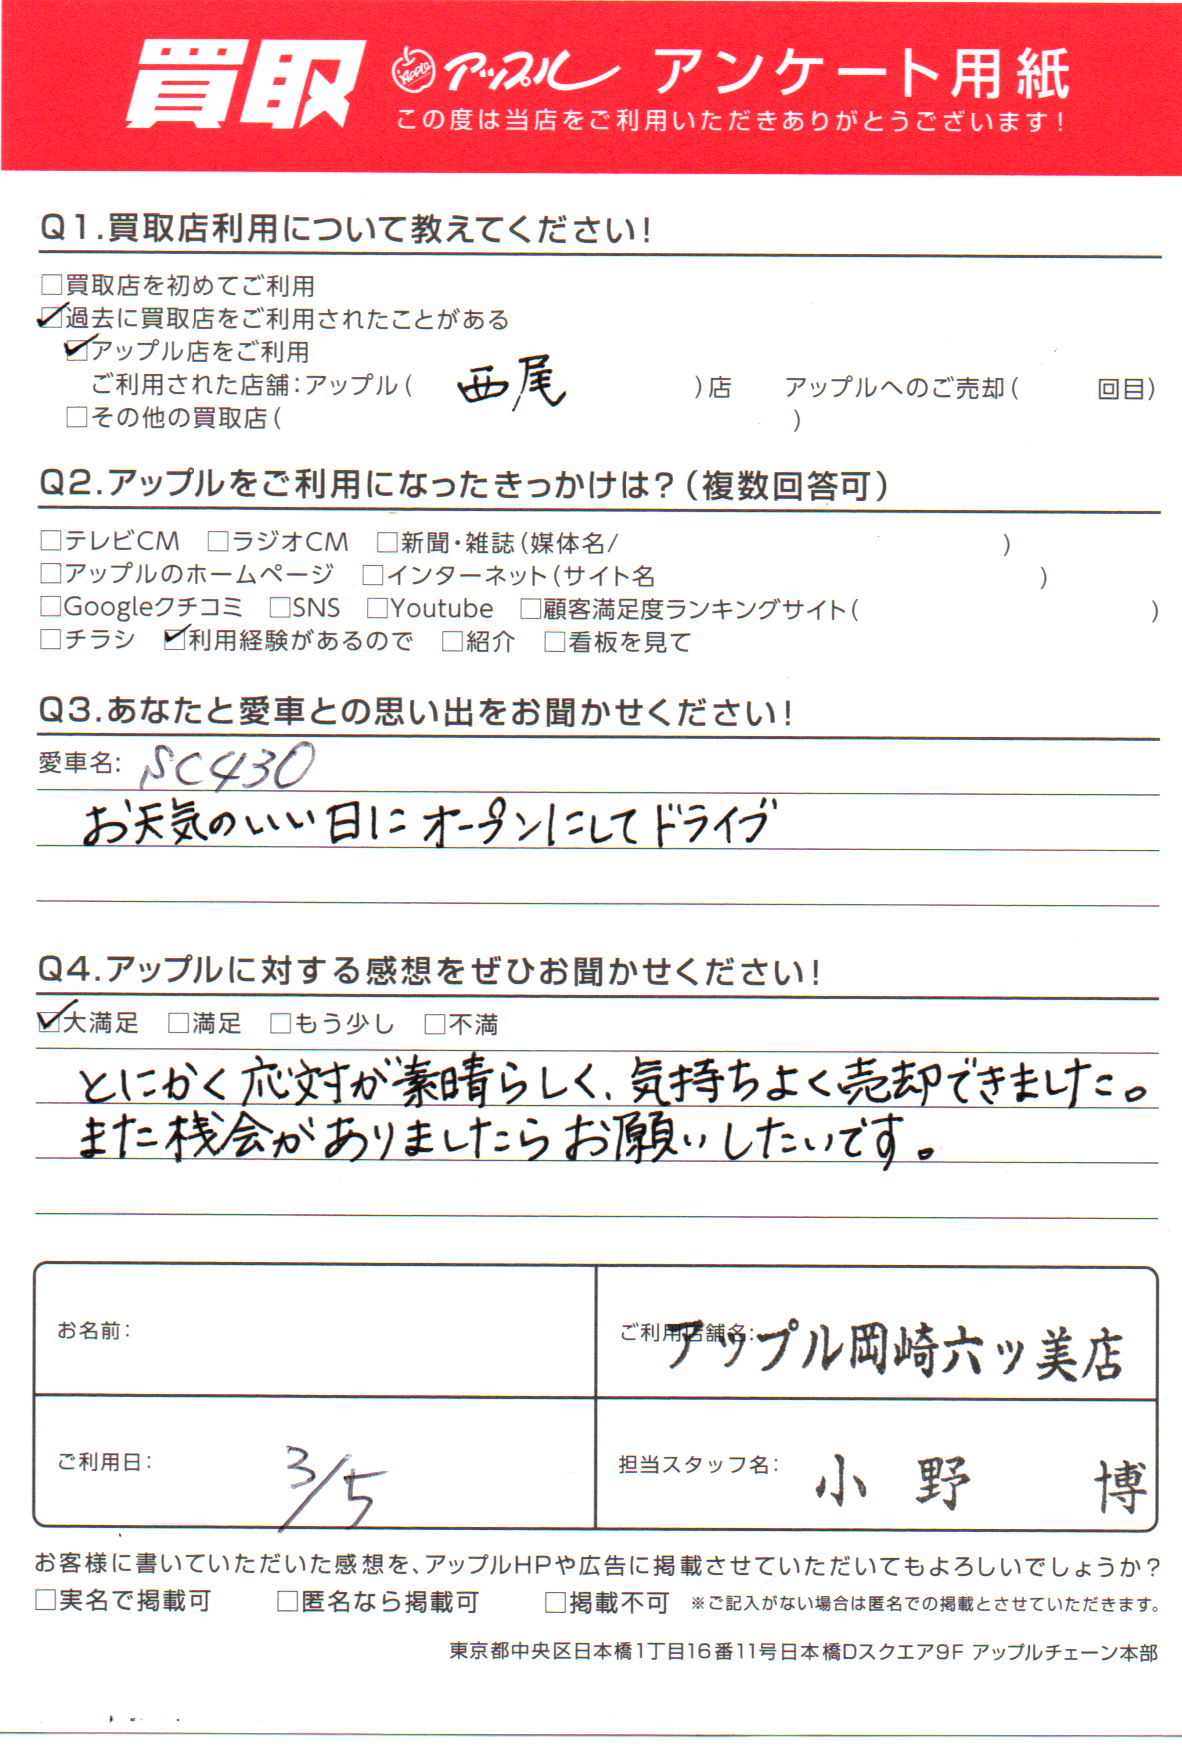 買取 Apple アップル アンケート用紙
この度は当店をご利用いただきありがとうございます!
Q1.買取店利用について教えてください!
□買取店を初めてご利用
☑過去に買取店をご利用されたことがある
☑アップル店をご利用
ご利用された店舗:アップル( 西尾 )店 アップルへのご売却( 回目)
□その他の買取店( )
Q2.アップルをご利用になったきっかけは?(複数回答可)
□テレビCM □ラジオCM □新聞・雑誌(媒体名/ )
□アップルのホームページ □インターネット(サイト名 )
□Googleクチコミ □SNS □Youtube □顧客満足度ランキングサイト( )
□チラシ ☑利用経験があるので □紹介 □看板を見て
Q3.あなたと愛車との思い出をお聞かせください!
愛車名: SC430
お天気のいい日にオープンにしてドライブ
Q4.アップルに対する感想をぜひお聞かせください!
☑大満足 □満足 □もう少し □不満
とにかく応対が素晴らしく、気持ちよく売却できました。
また機会がありましたらお願いしたいです。
お名前:
ご利用店舗名: アップル岡崎六ッ美店
ご利用日: 3/5
担当スタッフ名: 小野 博
お客様に書いていただいた感想を、アップルHPや広告に掲載させていただいてもよろしいでしょうか?
□実名で掲載可 □匿名なら掲載可 □掲載不可 ※ご記入がない場合は匿名での掲載とさせていただきます。
東京都中央区日本橋1丁目16番11号日本橋Dスクエア9F アップルチェーン本部